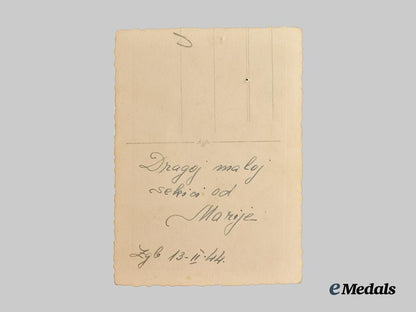 Dragoj maloj
sekici od
Marije
Zgb 13-II-44.
eMedals